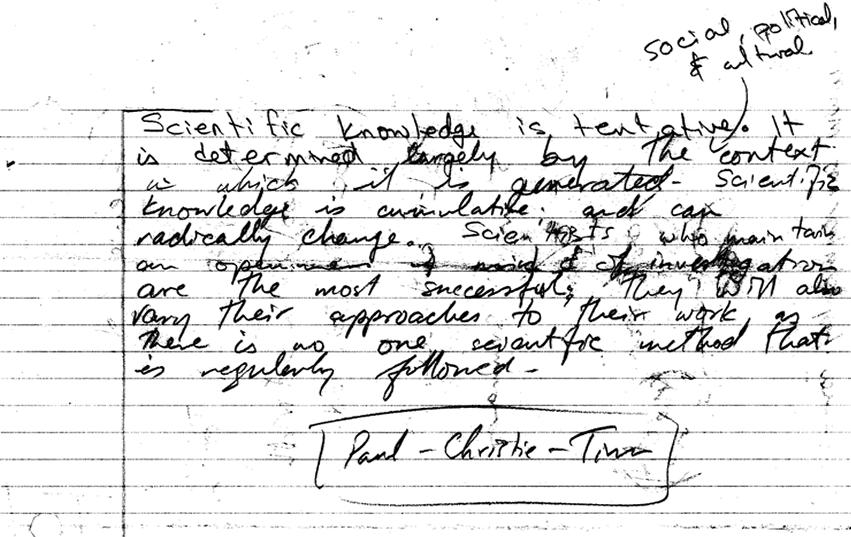 social, political,
& cultural
Scientific knowledge is tentative. It
is determined largely by the context
in which it is generated. Scientific
knowledge is cumulative and can
radically change. Scientists who maintain
an of investigation
are the most successful; they will also
vary their approaches to their work as
there is no one scientific method that
is regularly followed.
Paul - Christie - Tim